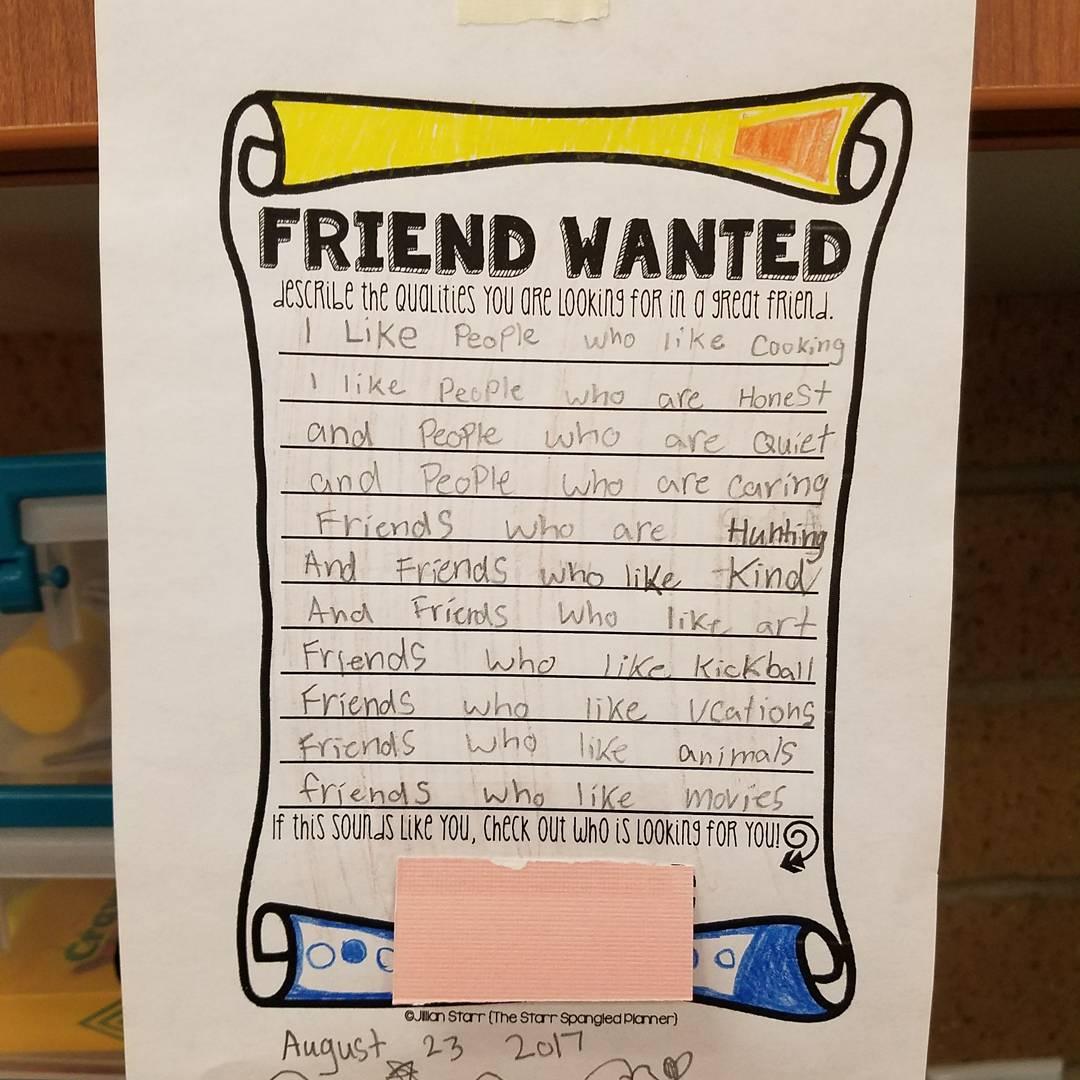 FRIEND WANTED
describe the qualities you are looking for in a great friend.
I Like People who like Cooking
I like People who are HoneSt
and People who are Quiet
and People who are caring
Friends who are Hunting
And Friends who like Kind
And Friends Who like art
Friends who like KicKball
Friends who like Vcations
Friends who like animals
friends who like movies
If this sounds like you, check out who is looking for you!
©Jillian Starr {The Starr Spangled Planner}
August 23 2017